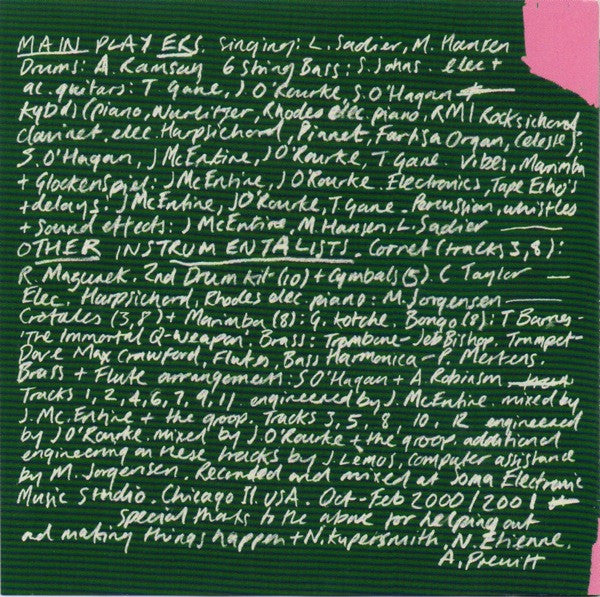 MAIN PLAYERS. Singing: L. Sadier, M. Hansen
Drums: A. Ramsay 6 String Bass: S. Johns elec +
ac. guitars: T Gane, J O'Rourke, S O'Hagan
Kybds (piano, Wurlitzer, Rhodes elec piano, RMI Rocksichord
clavinet, elec Harpsichord, Pianet, Farfisa Organ, Celeste):
S. O'Hagan, J McEntire, J O'Rourke, T Gane. Vibes, Marimba
+ Glockenspiel: J McEntire, J O'Rourke. Electronics, Tape Echo's
+ delays: J McEntire, J O'Rourke, T Gane. Percussion, whistles
+ sound effects: J McEntire, M. Hansen, L. Sadier
OTHER INSTRUMENTALISTS. Cornet (tracks 3, 8):
R Mazurek. 2nd Drum Kit (10) + Cymbals (5) C Taylor
Elec. Harpsichord, Rhodes elec piano: M. Jorgensen
Crotales (3, 8) + Marimba (8): G. Kotche. Bongo (8): T Barnes-
'The Immortal Q-Weapon, Brass: Trombone - Jeb Bishop. Trumpet-
Dave Max Crawford, Flutes, Bass Harmonica - P. Mertens.
Brass + Flute arrangement: S O'Hagan + A Robinson
Tracks 1, 2, 4, 6, 7, 9, 11 engineered by J. McEntire. mixed by
J. McEntire + the groop. Tracks 3, 5, 8, 10, 12 engineered
by J O'Rourke. mixed by J. O'Rourke + the groop. additional
engineering on these tracks by J. Lemos, computer assistance
by M. Jorgensen. Recorded and mixed at Soma Electronic
Music Studio. Chicago Il. USA. Oct-Feb 2000/2001
special thanks to the above for helping out
and making things happen + N. Kupersmith, N. Etienne.
A. Prewitt